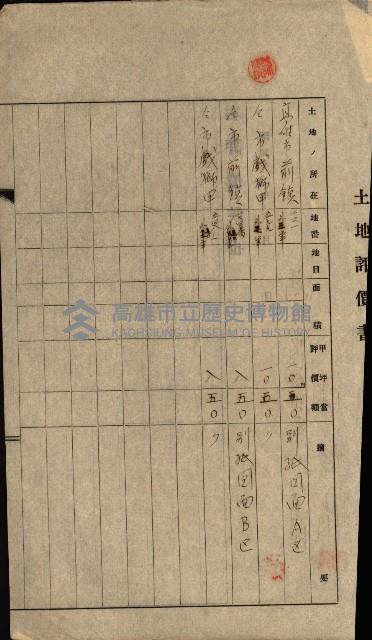 土地評價書
土地ノ所在 地番 地目 面積 甲坪當評價額 摘要
高雄市前鎮 一〇五〇 別紙図面A区
仝市戯獅甲 一〇五〇 〃
仝市前鎮 八五〇 別紙図面B区
仝市戯獅甲 八五〇 〃
高雄市立歷史博物館
KAOHSIUNG MUSEUM OF HISTORY